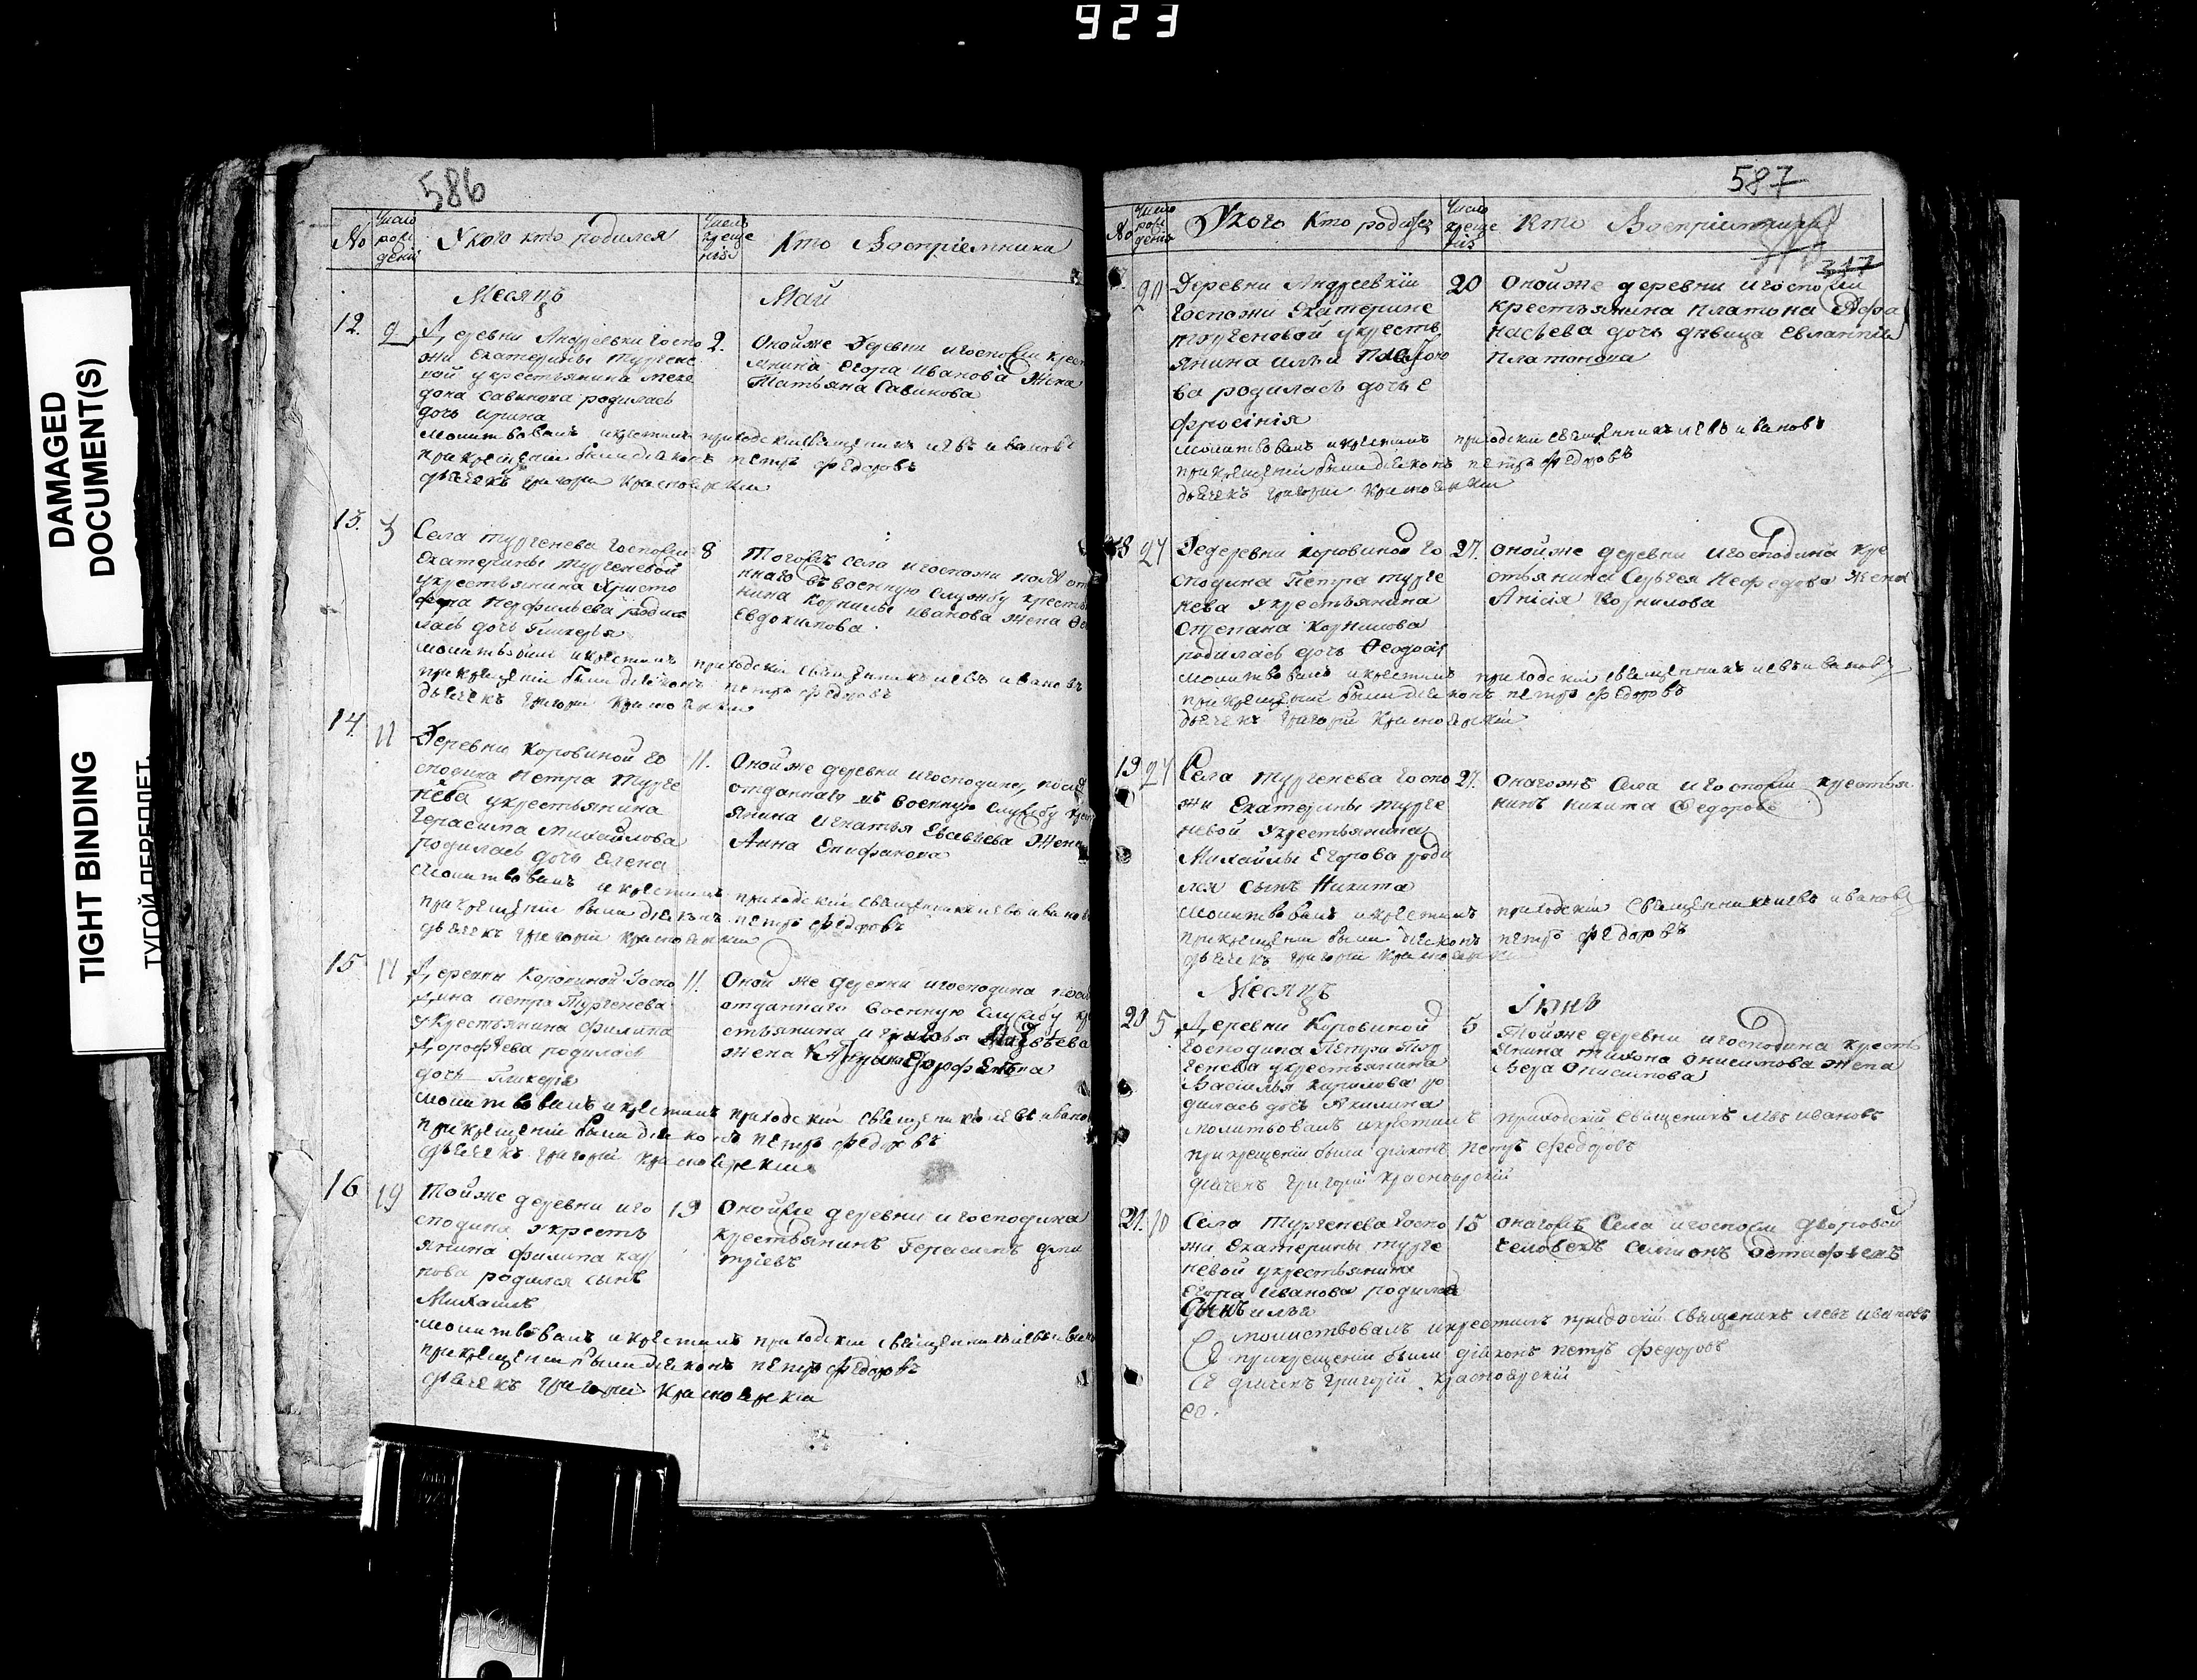 923
DAMAGED
DOCUMENT(S)
TIGHT BINDING
ТУГОЙ ПЕРЕПЛЕТ
586
№
Число рождени
У кого кто родился
Число креще нія
Кто Воспріемника
Месяцъ
Май
12.
2
Деревни Андреевки госпо
жи Екатерины Тургене
вой у крестьянина
Савинова родилась
дочь Ирина
2.
Онойже Деревни и госпожи крес
янина Егора Иванова Жена
Татьяна Савинова
молитвовалъ и крестилъ приходскій священникъ левъ ивановъ
при крещеніи были діаконъ петръ федоровъ
дьячекъ григорій Красноярскій
13.
3
Села тургенева госпожи
Екатерины тургеневой
у крестьянина Христо
фора Перфильева роди
лась дочь Гликерья
8
Тогожъ села и госпожи
въ военную службу кресть
нина Корнилы иванова жена
Евдокимова
молитвовалъ и крестилъ приходскій священникъ левъ ивановъ
при крещеніи были діаконъ петръ федоровъ
дьячекъ григорій Красноярскій
14.
11
Деревни Коровиной го
сподина Петра Турге
нева у крестьянина
Герасима Михайлова
родилась дочь Елена
11.
Онойже деревни и господина,
отданнаго въ военную службу
янина Игнатья Евсевьева Жена
Анна Епифанова
молитвовалъ и крестилъ приходскій священникъ левъ иванов
при крещеніи были діаконъ петръ федоровъ
дьячекъ григорій Красноярскій
15
11
Деревни Коровиной Госпо
дина петра Тургенева
у Крестьянина филипа
Дорофѣева родилась
дочь Гликерія
11.
Оной же деревни и господина
отданнаго военную службу
стьянина
жена
молитвовалъ и крестилъ приходскій священникъ левъ ивано
при крещеніи были діаконъ петръ федоровъ
дьячекъ григорій Красноярскій
16
19
Тойже деревни и го
сподина У крестъ
янина филипа кар
пова родился сынъ
Михаилъ
19
Онойже деревни и господина
крестьянинъ Герасимъ дми
тріевъ
молитвовалъ и крестилъ приходскій священникъ левъ иван
при крещеніи были діаконъ петръ федоровъ
дьячекъ григорій Красноярскій
587
№
Число рожденія
У кого Кто родился
Число креще нія
Кто Воспріемника
317
20
Деревни Андреевкіи
Госпожи Екатерине
тургеновой у кресть
янина ильи
ва родилась дочь Е
фросінія
20
Онойже деревни и госпожи
крестьянина Платона Афа
насьева дочь дѣвица Евлампія
Платонова
молитвовалъ и крестилъ приходскій священникъ левъ ивановъ
при крещеніи были діаконъ петръ федоровъ
дьячекъ григорій Красноярскій
18
27
Седеревни коровиной го
сподина Петра турге
нева У крестьянина
Степана Корнилова
родилась дочь Феодосія
27.
онойже деревни и господина кре
стьянина Сергея Нефедова жена
Анісія Корнилова
молитвовалъ и крестилъ приходскій священникъ левъ ивановъ
при крещеніи были діаконъ петръ федоровъ
дьячекъ григорій Красноярскій
19
27
Села тургенева госпо
жи Екатерины турге
невой У крестьянина
Михайлы Егорова роди
лся сынъ Никита
27.
онагожъ Села и госпожи крестья
нинъ никита Федоровъ
молитвовалъ и крестилъ приходскій священникъ левъ ивановъ
при крещеніи были діаконъ петръ федоровъ
дьячекъ григорій Красноярскій
Месяцъ
Іюнь
20
5
Деревни Коровиной
господина Петра Тур
генева у крестьянина
Василья Кирилова ро
дилась дочь Акилина
5
Тойже деревни и господина кресть
янина тихона онисимова жена
Вера Онисимова
молитвовалъ и крестилъ приходскій священикъ левъ ивановъ
при крещеніи были діаконъ петръ федоровъ
дьячекъ григорій красноярскій
21.
10
Села Тургенева госпо
жи Екатерины турге
невой у крестьянина
Егора Иванова родился
Сынъ илья
15
онагожъ Села и госпожи дворовой
человекъ симионъ Остафьевъ
молиствовалъ и крестилъ приходскій священикъ левъ ивановъ
при крещеніи были діаконъ петръ федоровъ
дьячекъ григорій красноярскій